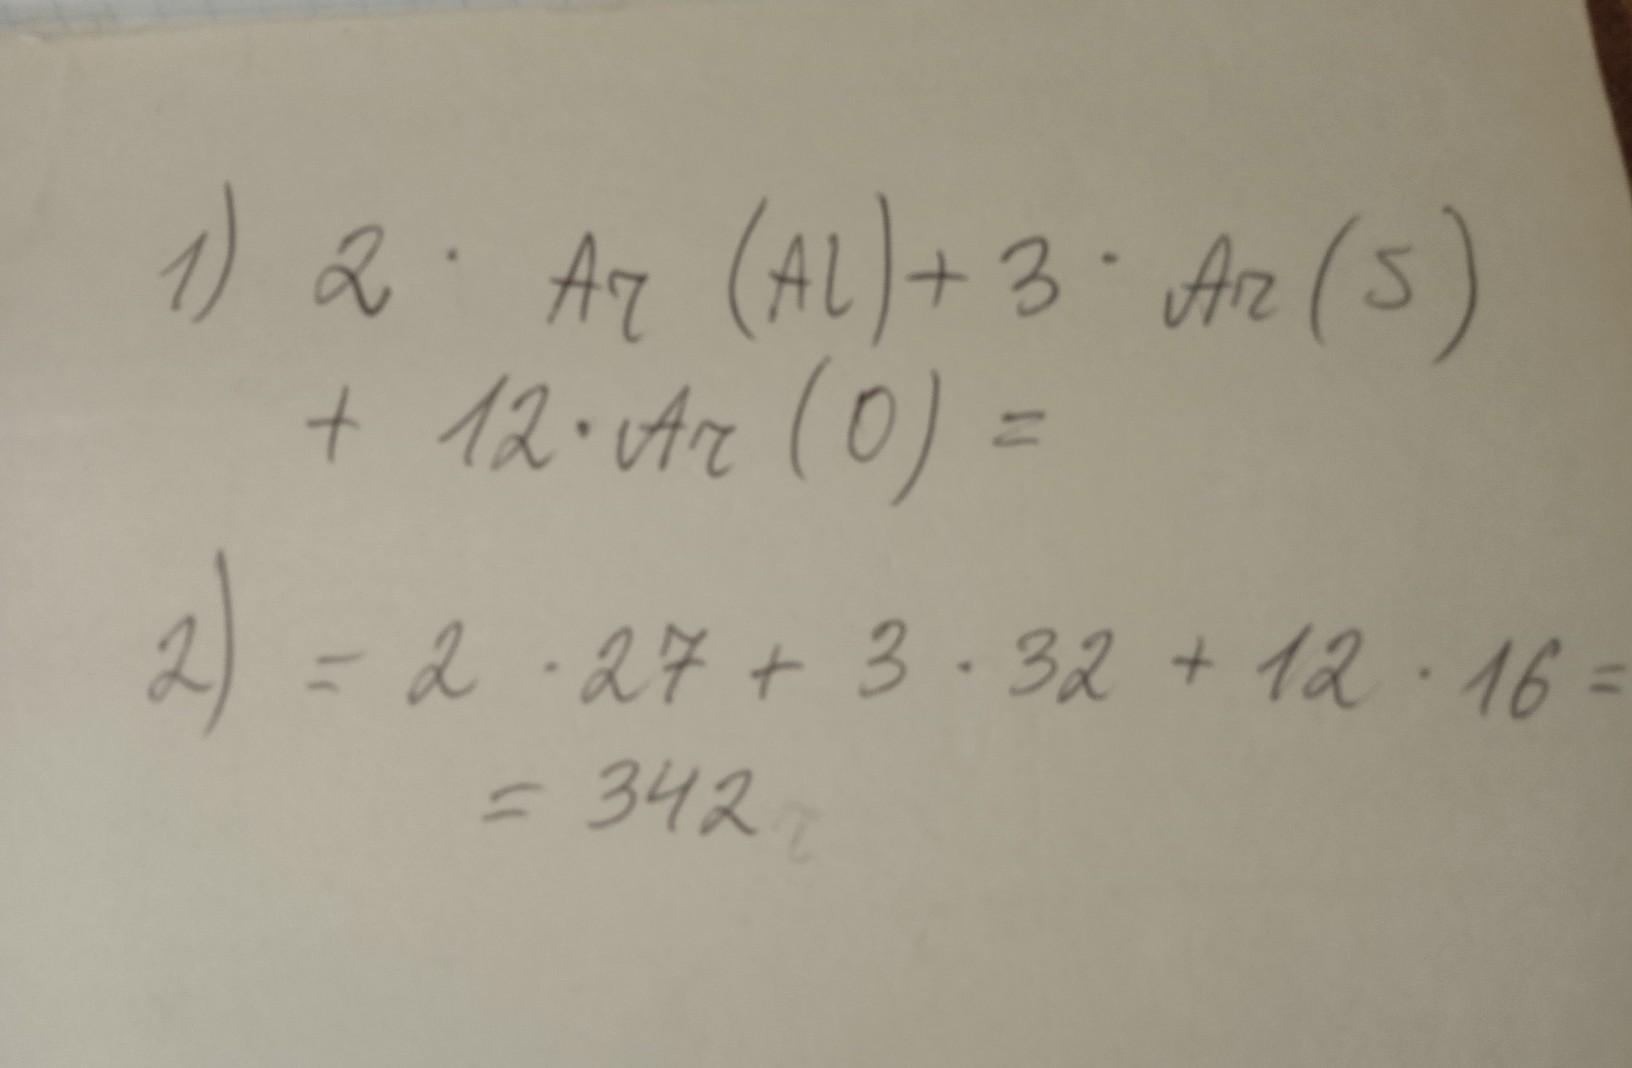 1) 2 · Ar (Al) + 3 · Ar (S)
+ 12 · Ar (O) =
2) = 2 · 27 + 3 · 32 + 12 · 16 =
= 342